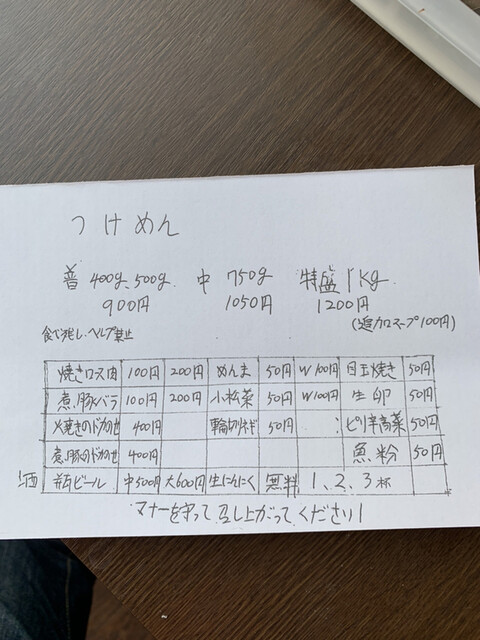 つけめん
普 400g、500g 中 750g 特盛 1kg
900円 1050円 1200円
食べ残し・ヘルプ禁止 (追加スープ100円)
焼きロース肉 100円 200円 めんま 50円 W100円 目玉焼き 50円
煮豚バラ 100円 200円 小松菜 50円 W100円 生卵 50円
火焼きのドカのせ 400円 輪切りネギ 50円 ピリ辛高菜 50円
煮豚のドカのせ 400円 魚粉 50円
酒 瓶ビール 中500円 大600円 生にんにく 無料 1、2、3杯
マナーを守って召し上がってください!